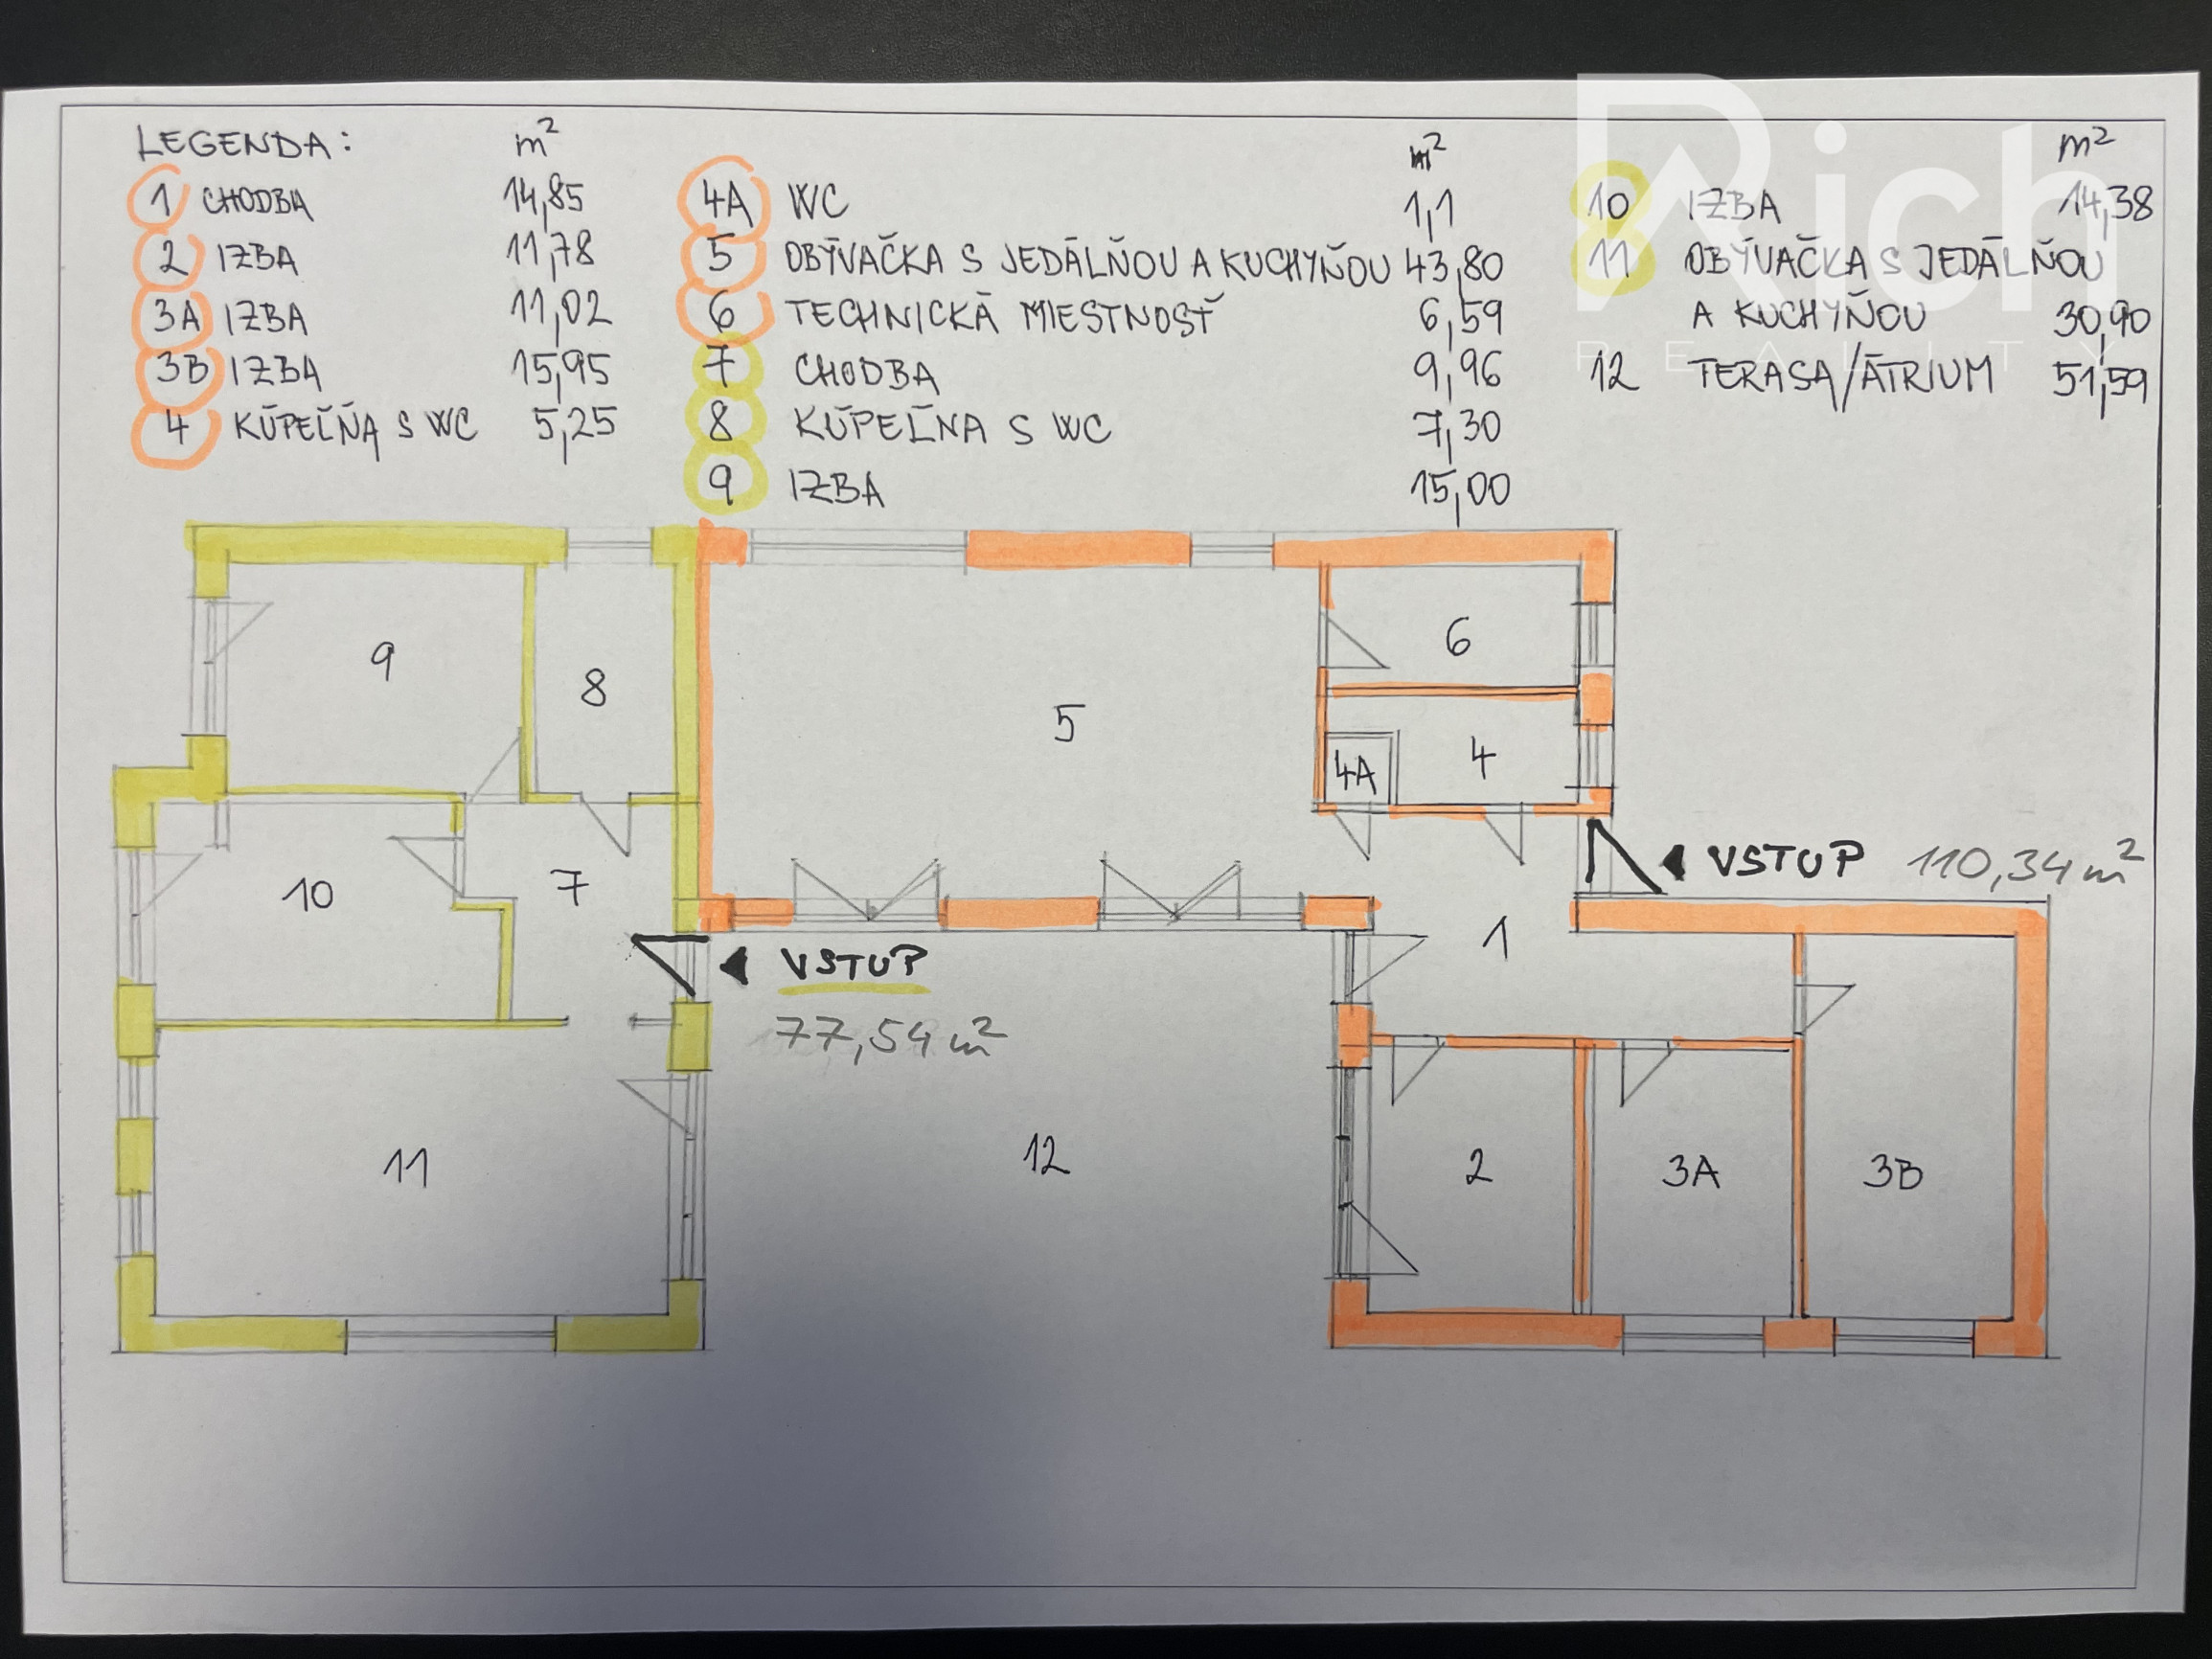 LEGENDA: m² m² m²
1 CHODBA 14,85
2 IZBA 11,78
3A IZBA 11,02
3B IZBA 15,95
4 KÚPEĽŇA S WC 5,25
4A WC 1,1
5 OBÝVAČKA S JEDÁLŇOU A KUCHYŇOU 43,80
6 TECHNICKÁ MIESTNOSŤ 6,59
7 CHODBA 9,96
8 KÚPEĽNA S WC 7,30
9 IZBA 15,00
10 IZBA 14,38
11 OBÝVAČKA S JEDÁLŇOU
A KUCHYŇOU 30,90
12 TERASA/ÁTRIUM 51,59
Rich
REALITY
9
8
5
6
4A
4
10
7
VSTUP 110,34 m²
1
VSTUP
77,54 m²
11
12
2
3A
3B